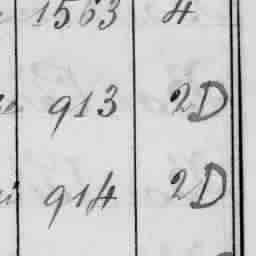 1563 4
913 2D
914 2D